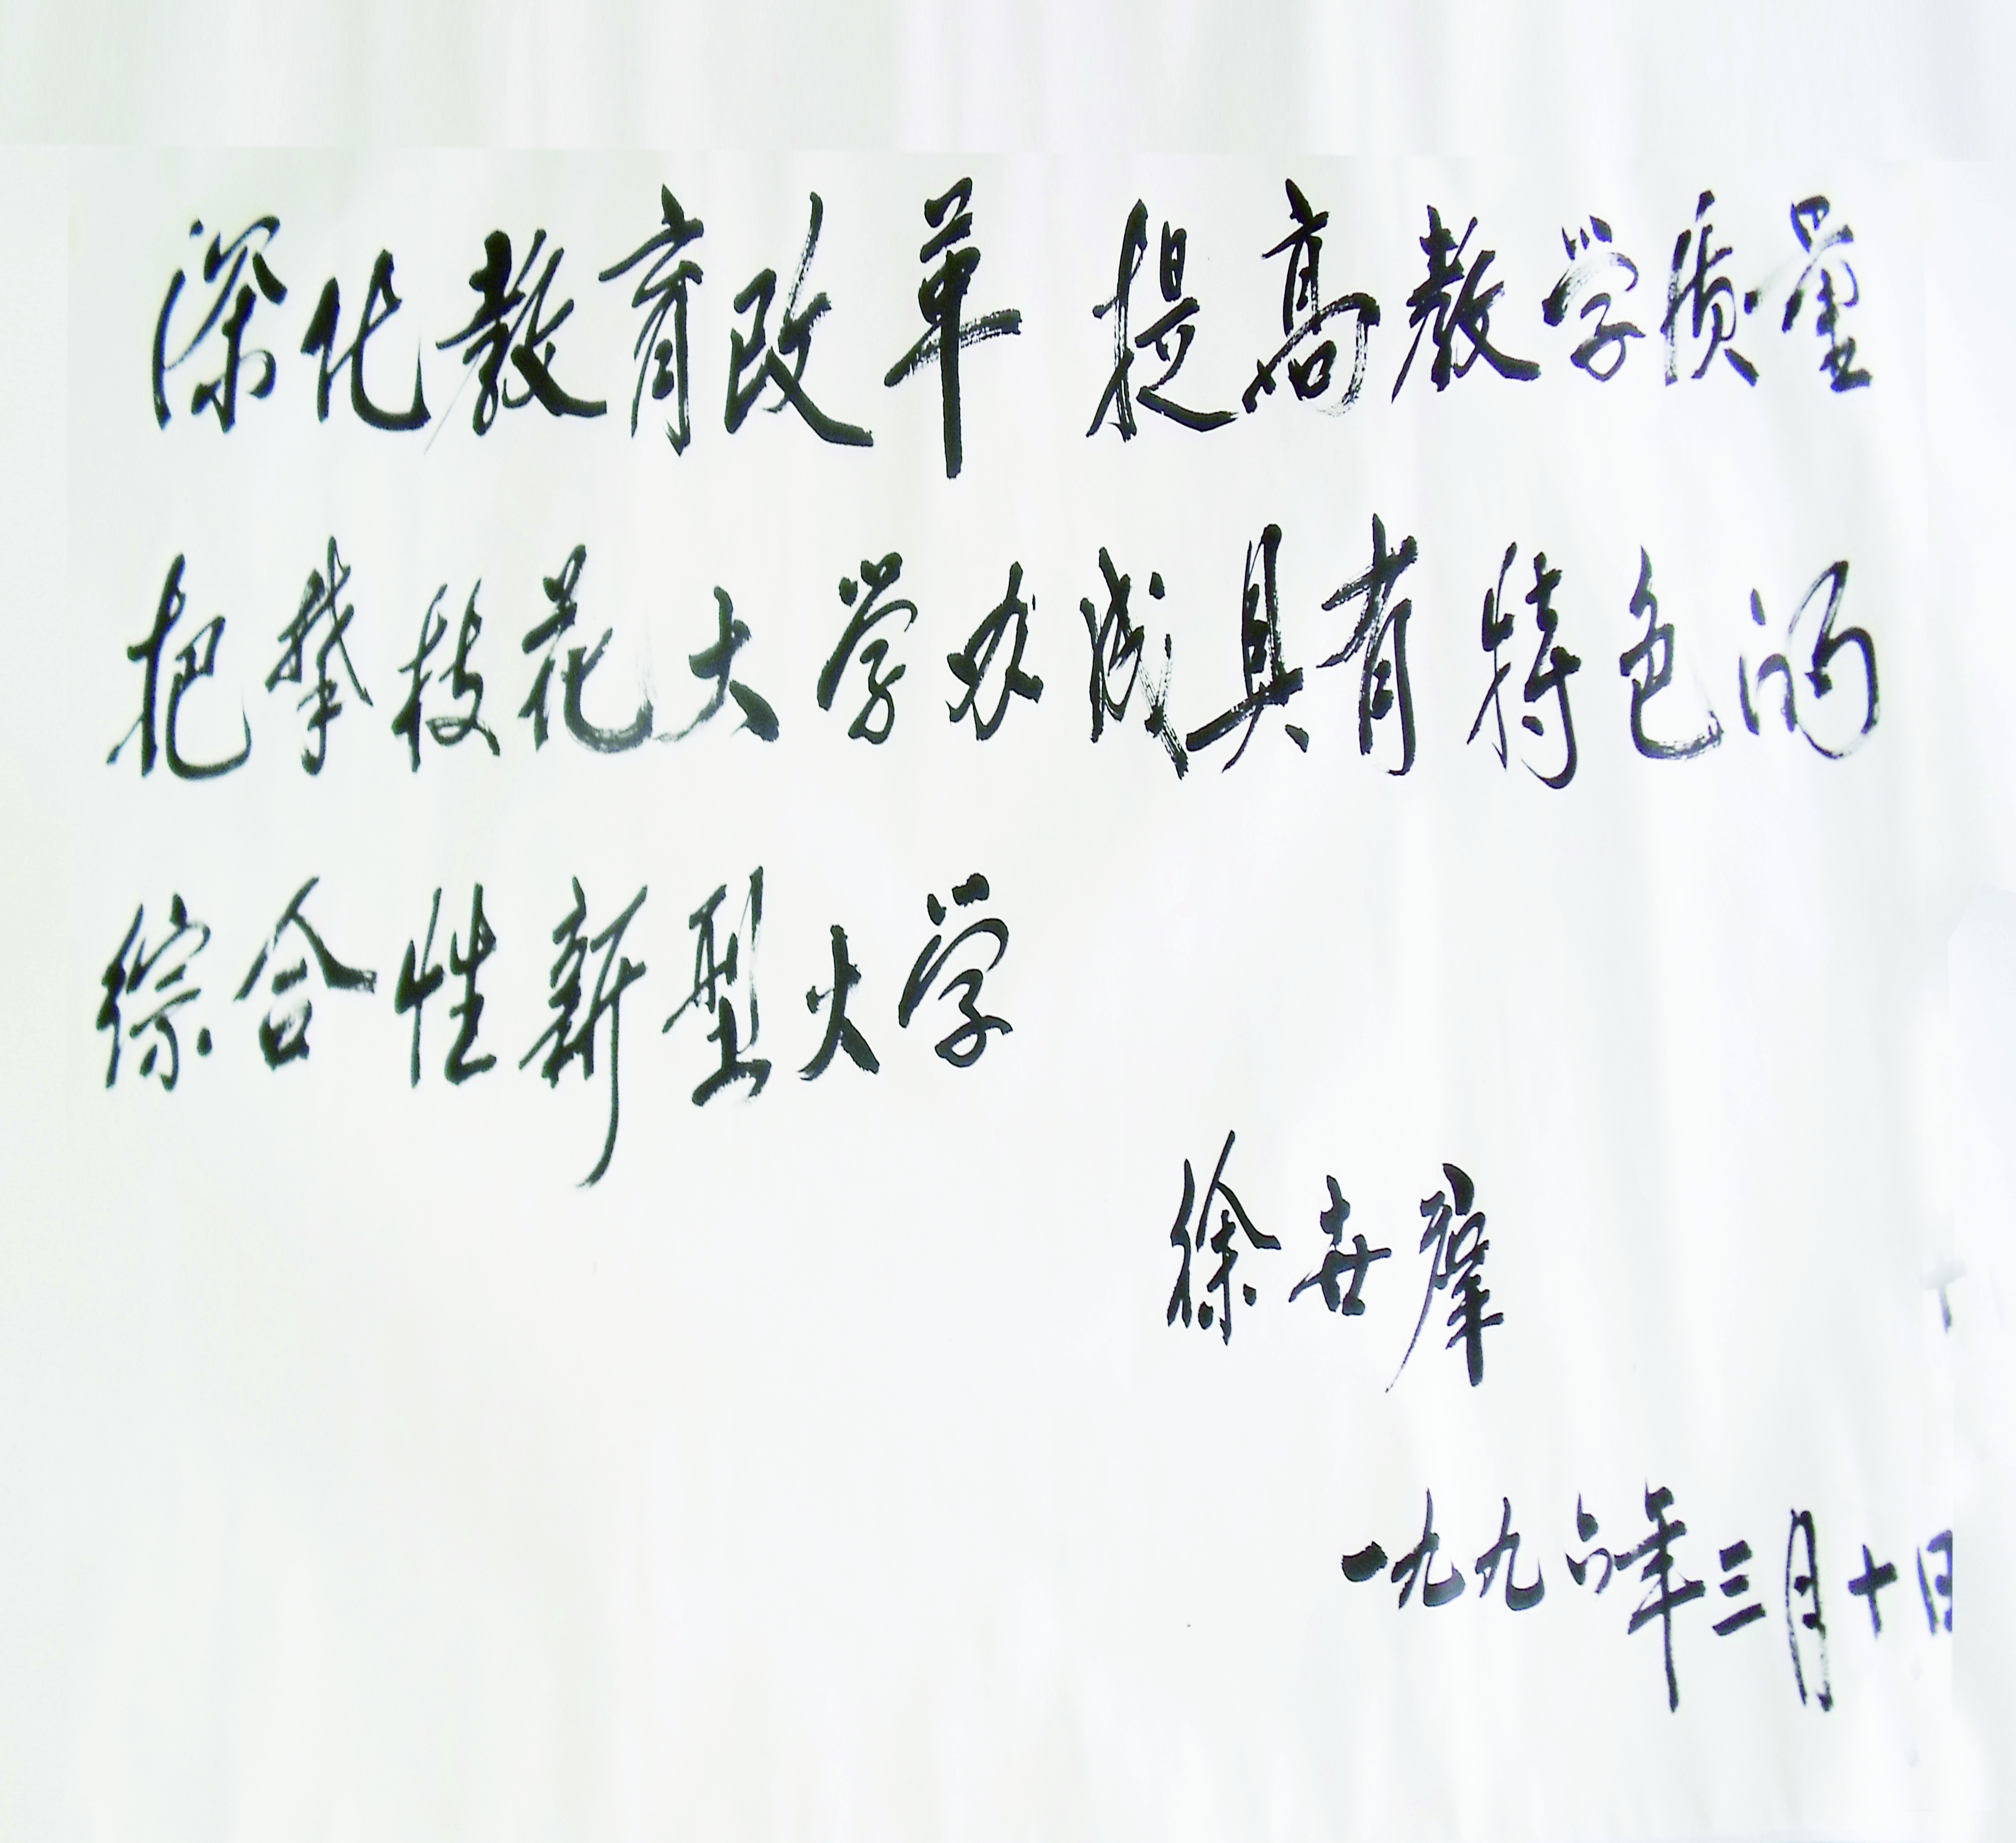 深化教育改革 提高教学质量
把攀枝花大学办成具有特色的
综合性新型大学
徐世群
一九九六年三月十日